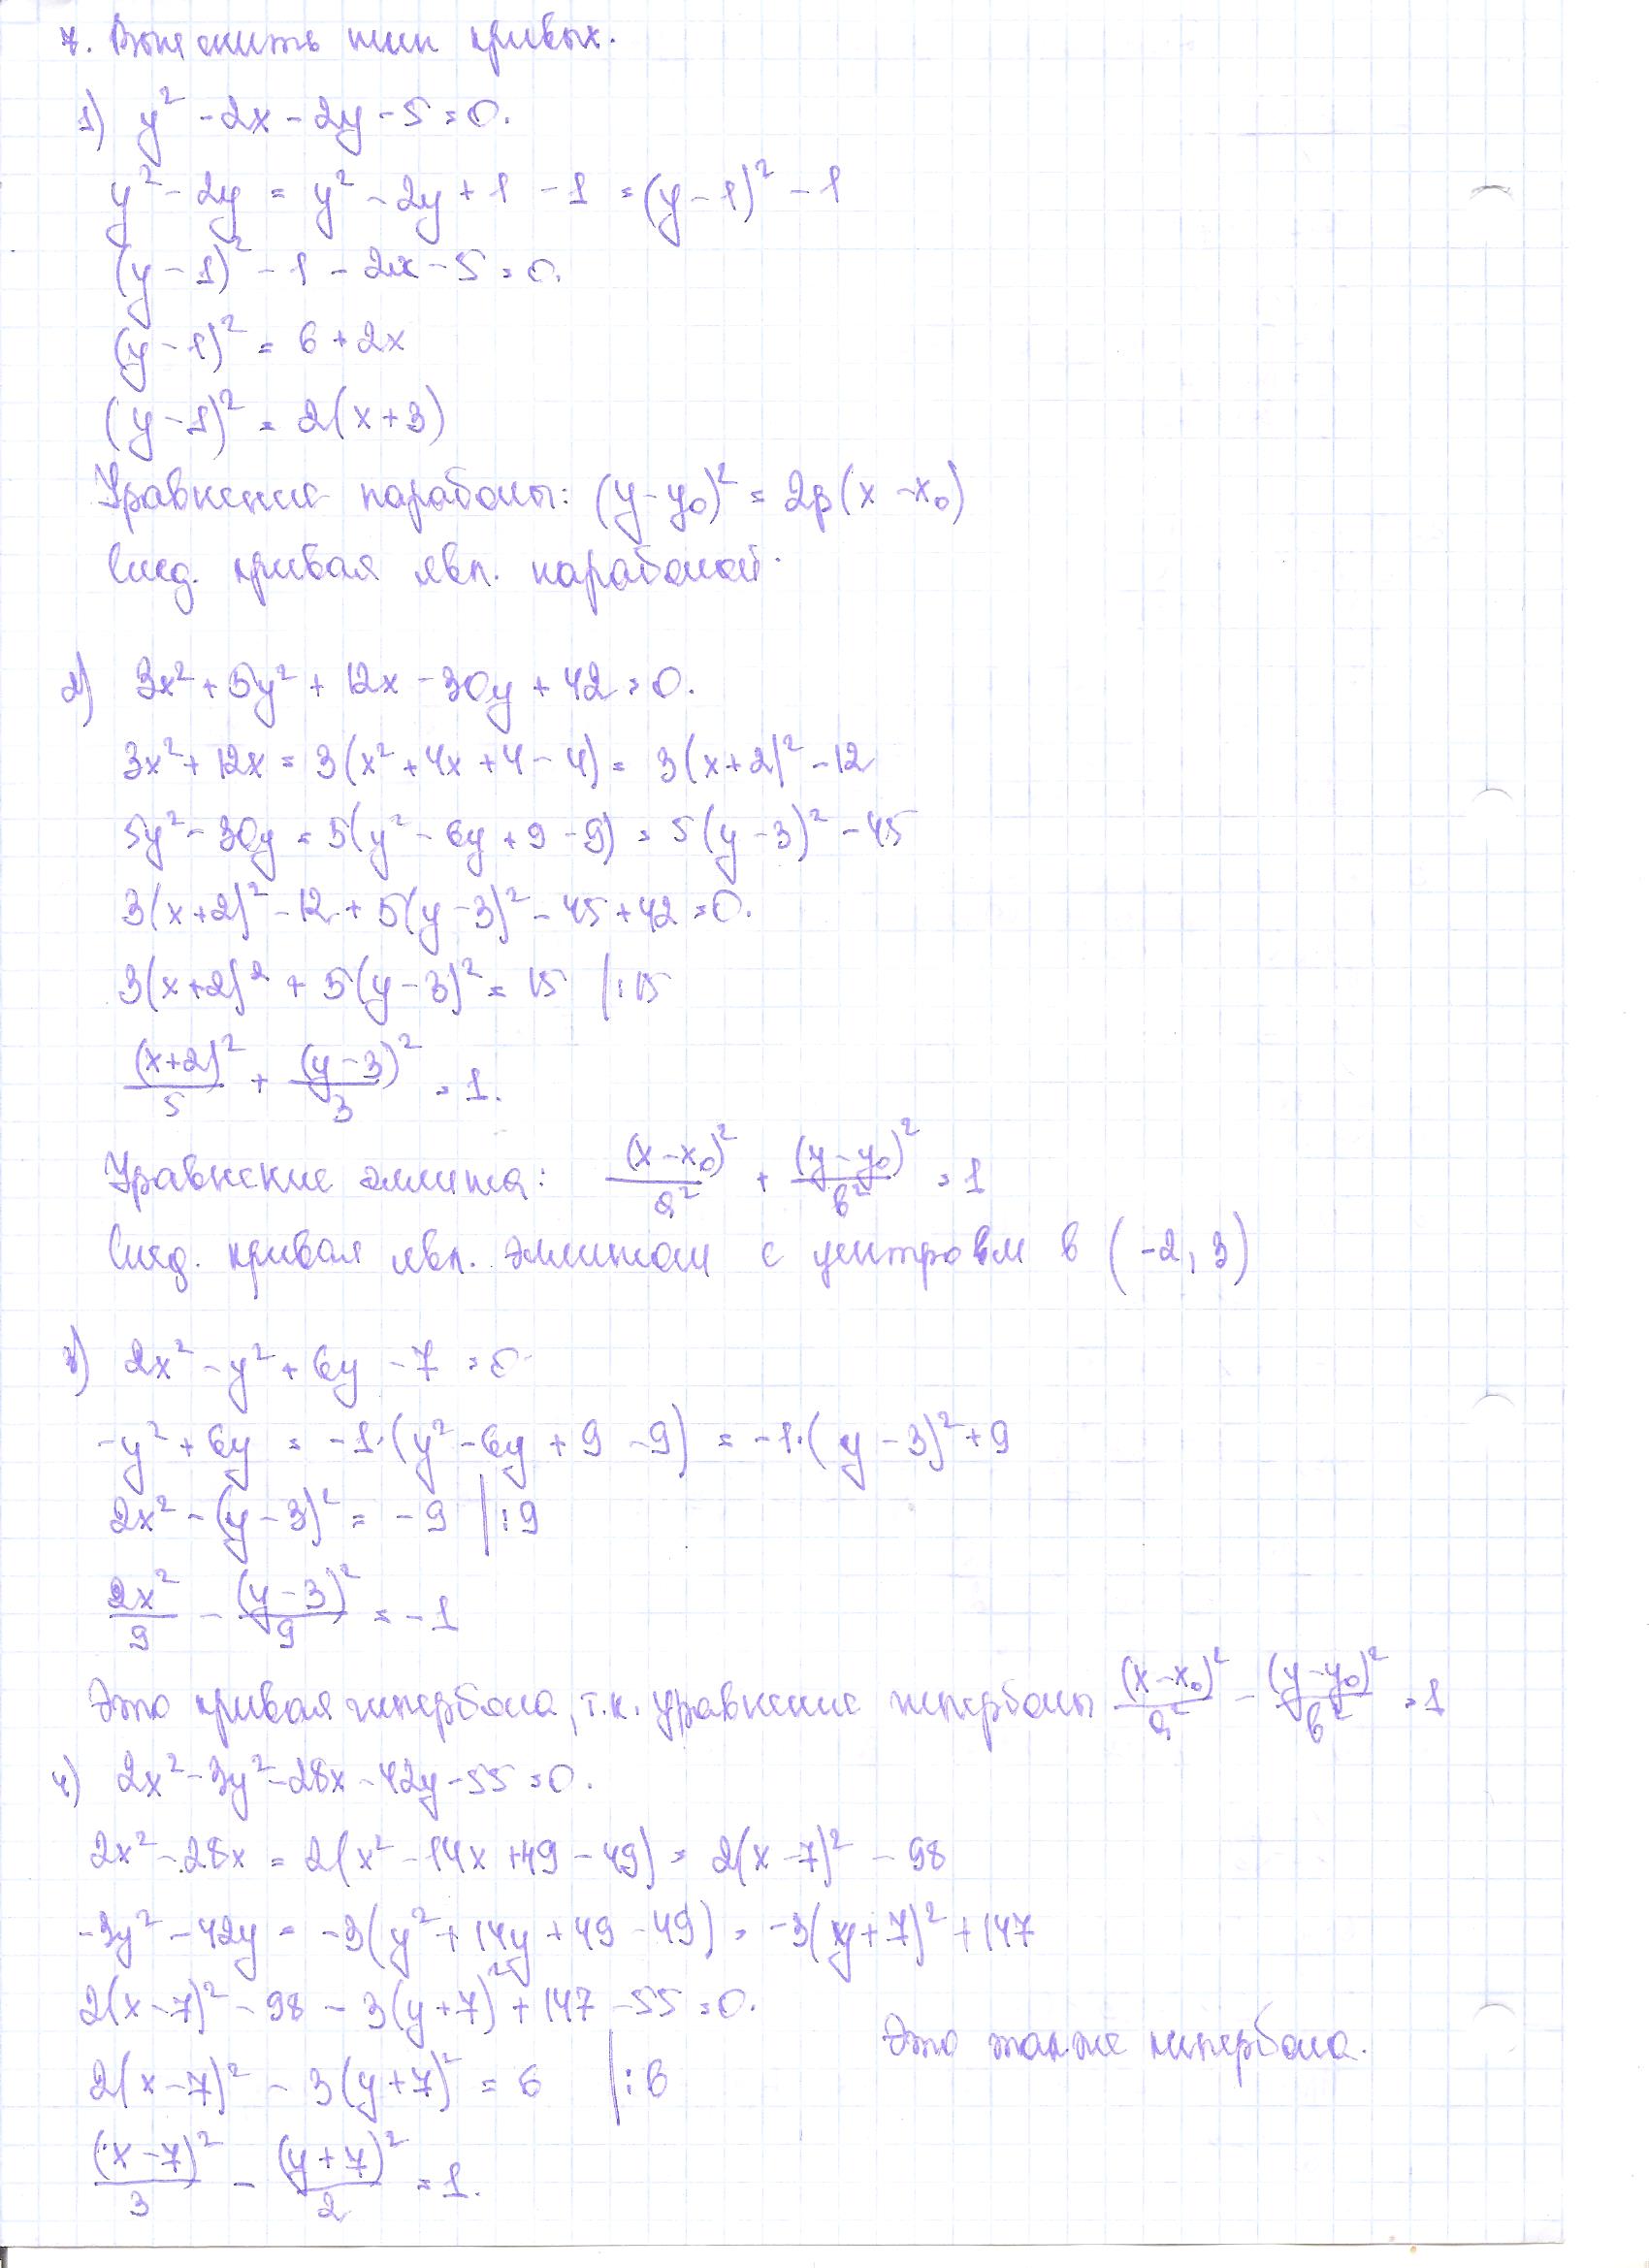 7. Выяснить тип кривых.
1) y² - 2x - 2y - 5 = 0.
y² - 2y = y² - 2y + 1 - 1 = (y - 1)² - 1
(y - 1)² - 1 - 2x - 5 = 0.
(y - 1)² = 6 + 2x
(y - 1)² = 2(x + 3)
Уравнение параболы: (y - y₀)² = 2p(x - x₀)
След. кривая явл. параболой.
2) 3x² + 5y² + 12x - 30y + 42 = 0.
3x² + 12x = 3(x² + 4x + 4 - 4) = 3(x + 2)² - 12
5y² - 30y = 5(y² - 6y + 9 - 9) = 5(y - 3)² - 45
3(x + 2)² - 12 + 5(y - 3)² - 45 + 42 = 0.
3(x + 2)² + 5(y - 3)² = 15 |:15
(x+2)²/5 + (y-3)²/3 = 1.
Уравнение эллипса: (x - x₀)²/a² + (y - y₀)²/b² = 1
След. кривая явл. эллипсом с центром в (-2, 3)
3) 2x² - y² + 6y - 7 = 0
-y² + 6y = -1·(y² - 6y + 9 - 9) = -1·(y - 3)² + 9
2x² - (y - 3)² = -9 |:9
2x²/9 - (y - 3)²/9 = -1
Это кривая гипербола, т.к. уравнение гиперболы (x - x₀)²/a² - (y - y₀)²/b² = 1
4) 2x² - 3y² - 28x - 42y - 55 = 0.
2x² - 28x = 2(x² - 14x + 49 - 49) = 2(x - 7)² - 98
-3y² - 42y = -3(y² + 14y + 49 - 49) = -3(y + 7)² + 147
2(x - 7)² - 98 - 3(y + 7)² + 147 - 55 = 0.
Это также гипербола.
2(x - 7)² - 3(y + 7)² = 6 |:6
(x - 7)²/3 - (y + 7)²/2 = 1.